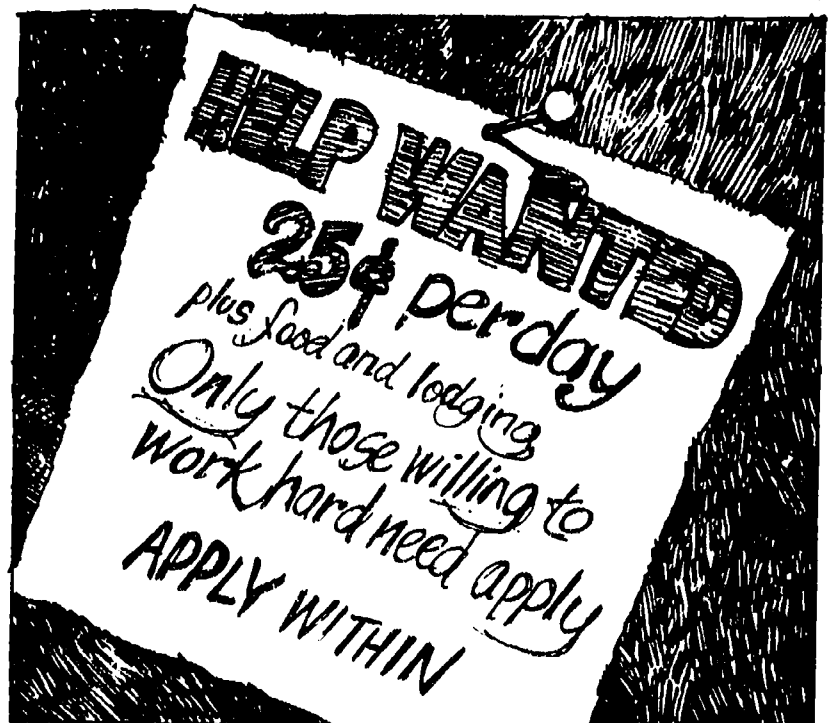 HELP WANTED
25¢ per day
plus food and lodging
Only those willing to
work hard need apply
APPLY WITHIN